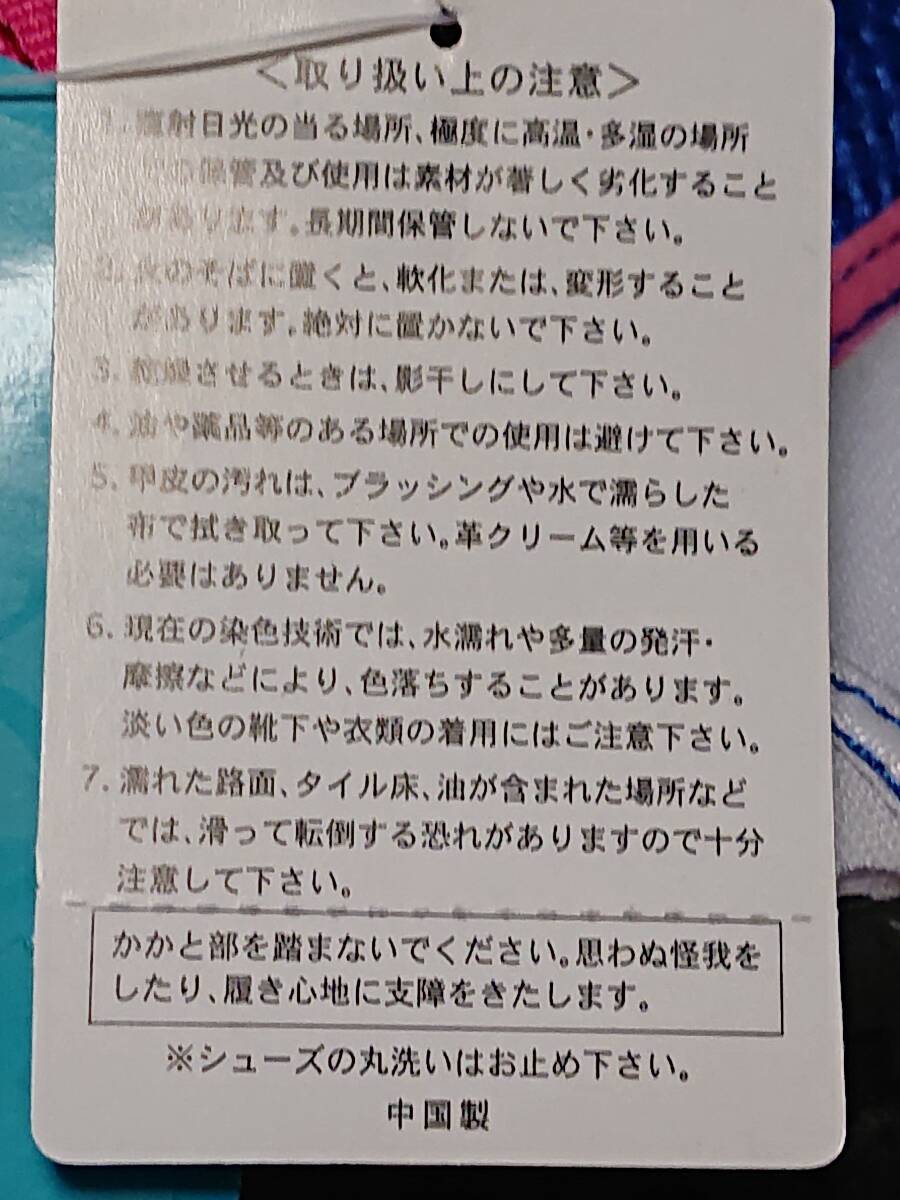 <取り扱い上の注意>
1. 直射日光の当る場所、極度に高温・多湿の場所
での保管及び使用は素材が著しく劣化すること
があります。長期間保管しないで下さい。
2. 火のそばに置くと、軟化または、変形すること
があります。絶対に置かないで下さい。
3. 乾燥させるときは、影干しにして下さい。
4. 油や薬品等のある場所での使用は避けて下さい。
5. 甲皮の汚れは、ブラッシングや水で濡らした
布で拭き取って下さい。革クリーム等を用いる
必要はありません。
6. 現在の染色技術では、水濡れや多量の発汗・
摩擦などにより、色落ちすることがあります。
淡い色の靴下や衣類の着用にはご注意下さい。
7. 濡れた路面、タイル床、油が含まれた場所など
では、滑って転倒する恐れがありますので十分
注意して下さい。
かかと部を踏まないでください。思わぬ怪我を
したり、履き心地に支障をきたします。
※シューズの丸洗いはお止め下さい。
中国製